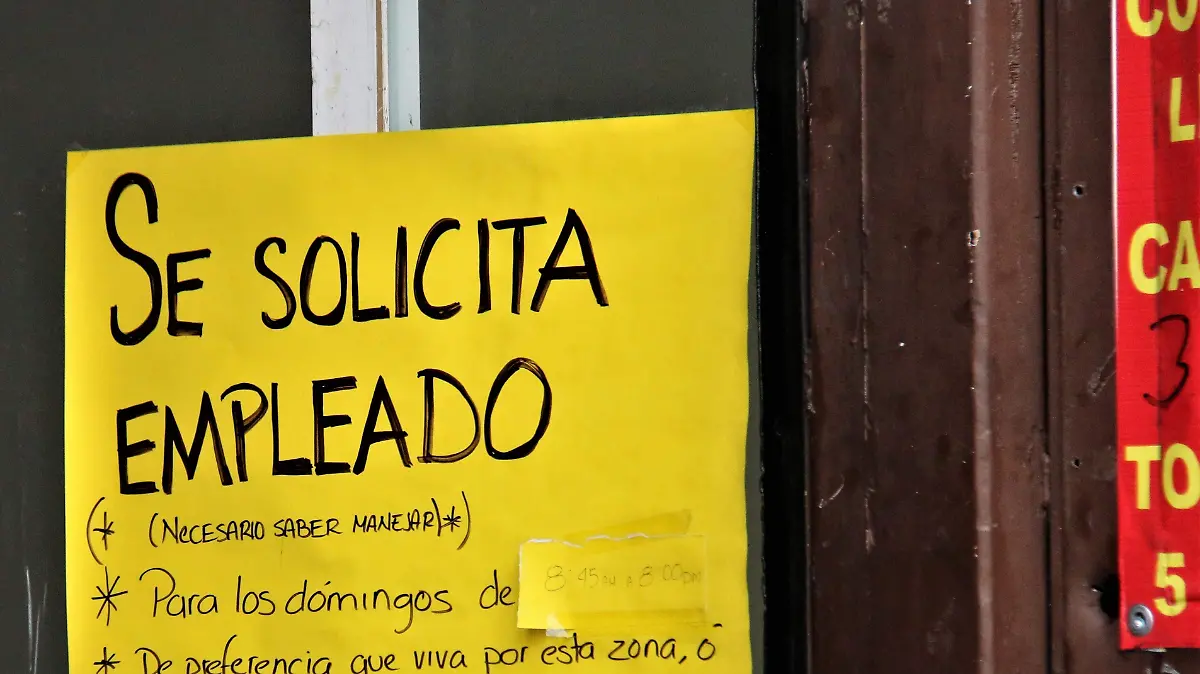 SE SOLICITA
EMPLEADO
(* (NECESARIO SABER MANEJAR)*)
* Para los dómingos de 8:45am a 8:00pm
* De preferencia que viva por esta zona, ó
CO
L
CA
3
TO
5